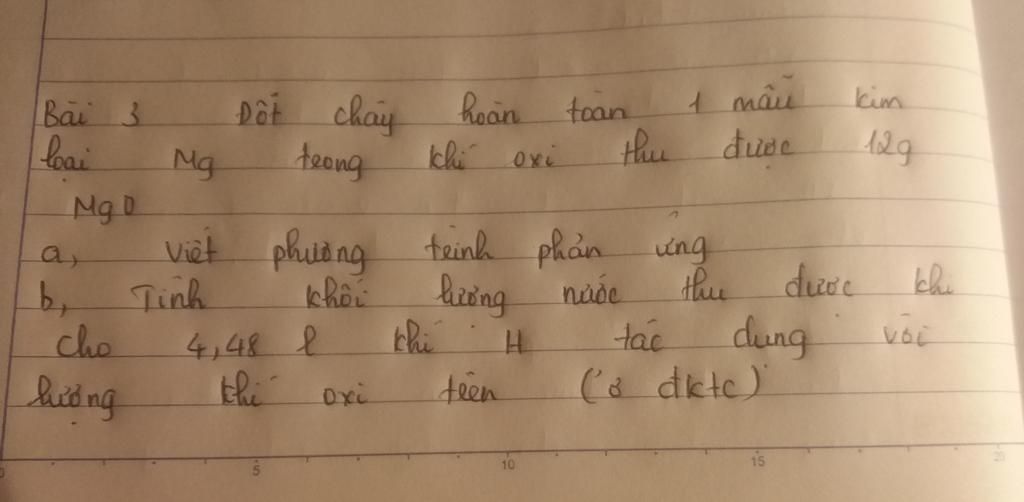 Bài 3 Đốt cháy hoàn toàn 1 mẫu kim
loại Mg trong khí oxi thu được 12g
MgO
a, Viết phương trình phản ứng
b, Tính khối lượng nước thu được khi
cho 4,48 l khí H tác dụng với
lượng khí oxi trên (ở đktc)
0 5 10 15 20